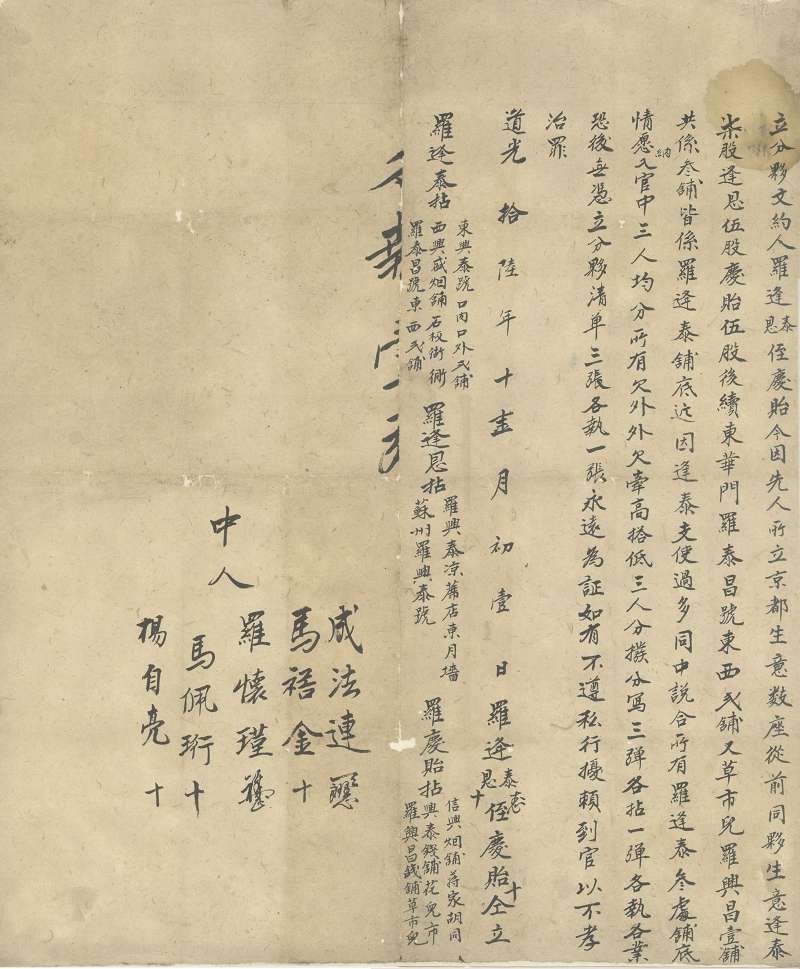 立分夥文約人羅逢泰恩侄慶貽今因先人所立京都生意数座從前同夥生意逢泰
柒股逢恩伍股慶貽伍股後續東華門羅泰昌號東西弍舖又草市兒羅興昌壹舖
共係叁舖皆係羅逢泰舖底近因逢泰支使過多同中説合所有羅逢泰叁處舖底
情愿納入官中三人均分所有欠外外欠牽高搭低三人分撥分寫三弹各拈一弹各執各業
恐後無憑立分夥清单三張各執一張永遠為証如有不遵私行擾賴到官以不孝
治罪
道光拾陸年十壹月初壹日羅逢泰恩十侄慶貽十仝立
羅逢泰拈
東興泰號口内口外弍舖
西興盛烟舖石板街衕
羅泰昌號東西弍舖
羅逢恩拈
羅興泰凉蓆店東月墻
蘇州羅興泰號
羅慶貽拈
信興烟舖蒋家胡同
興泰錢舖花兒市
羅興昌錢舖草市兒
中人
成法連
馬禧金十
羅懷瑾
馬佩珩十
楊自亮十